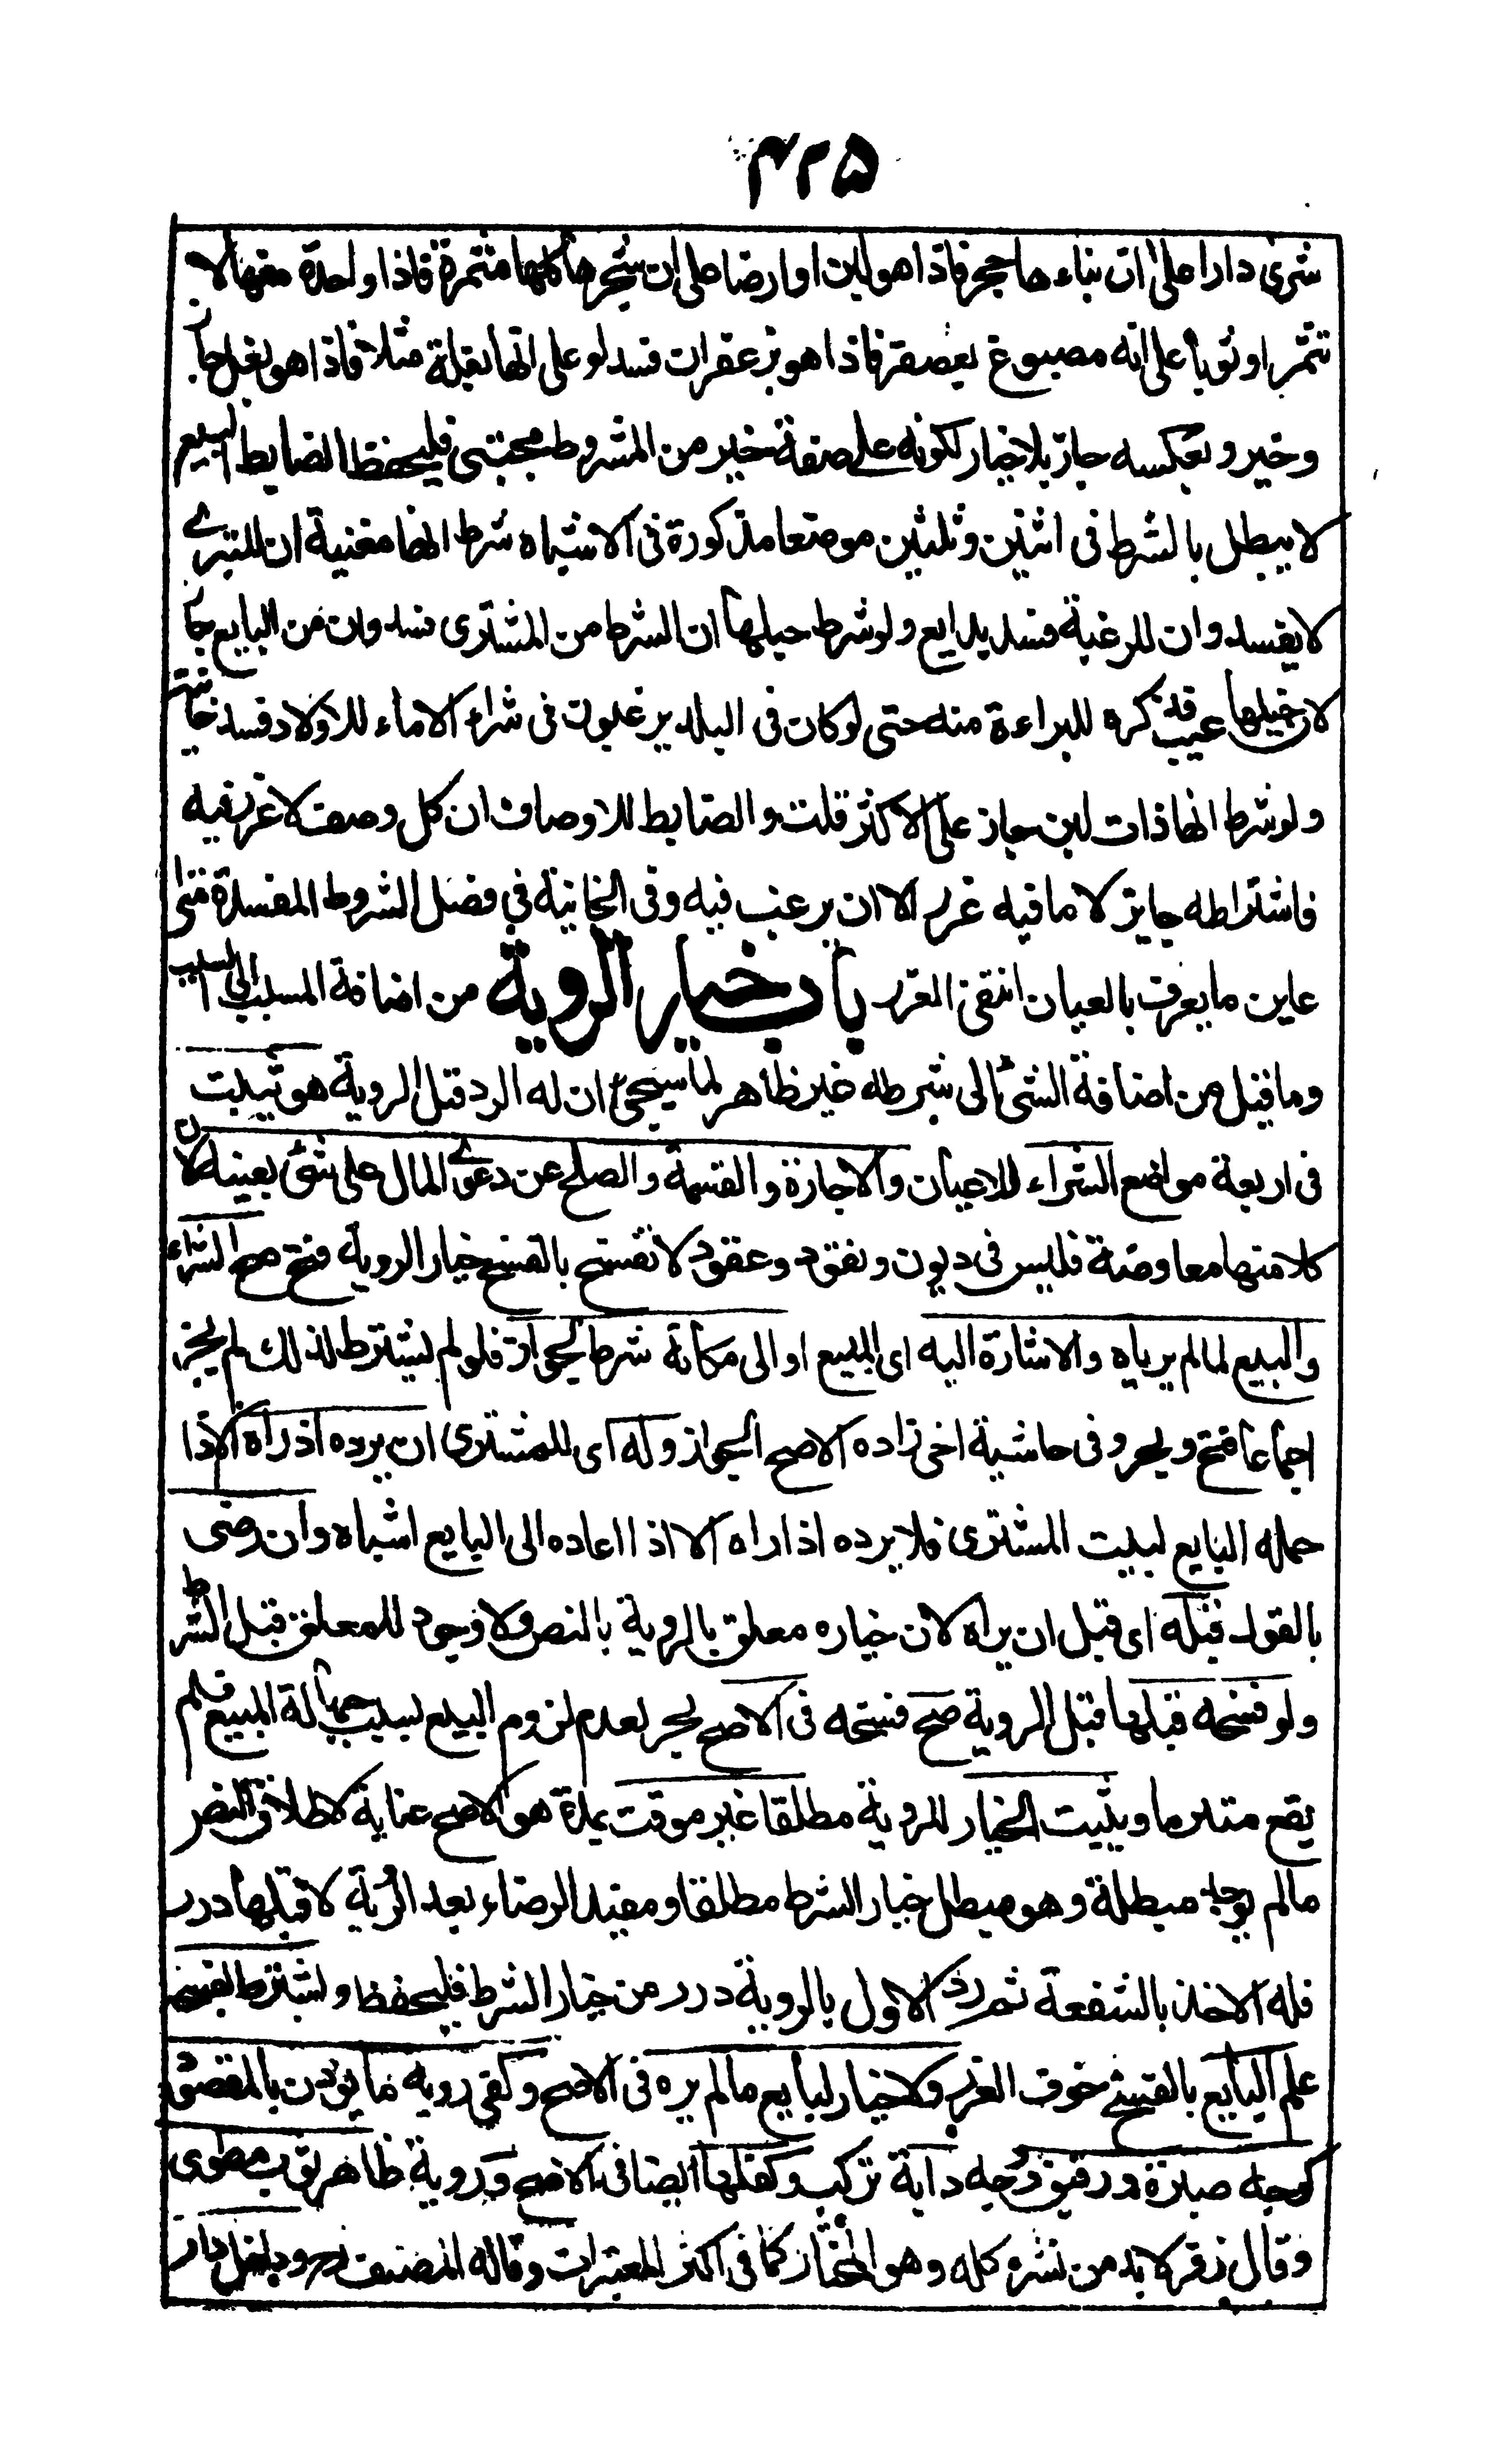 ۳۲۵
شرى دارا على ان بناء ها حجر فاذا هو لبن او ارضا على ان شجرها كلها مثمرة فاذا واحدة منها لا
تثمر او ثوبا على انه مصبوغ بعصفر فاذا هو بزعفران فسد لو على انها بغلة مثلا فاذا هو بغل جاز
وخير وبعكسه جاز بلا خيار لكونه على صفة خير من المشروط مجتبى فليحفظ الضابط البيع
لا يبطل بالشرط فى اثنين وثلثين موضعا مذكورة فى الاشباه شرط انها مغنية ان للتبرى
لا يفسد وان للرغبة فسد بدايع ولو شرط حبلها ان الشرط من المشترى فسد وان من البايع جاز
لان حبلها عيب فذكره للبراءة منه حتى لو كان فى البلد يرغبون فى شراء الاماء للاولاد فسد خانية
ولو شرط انها ذات لبن جاز على الاكثر قلت والضابط للاوصاف ان كل وصف لا غرر فيه
فاشتراطه جايز لا ما فيه غرر الا ان يرغب فيه وفى الخانية فى فصل الشروط المفسدة متى
عاين ما يعرف بالعيان انتفى الغرر باب خيار الروية من اضافة المسبب الى السبب
وما قيل من اضافة الشئ الى شرطه غير ظاهر لما سيجئ ان له الرد قبل الروية هو يثبت
فى اربعة مواضع الشراء للاعيان والاجارة والقسمة والصلح عن دعوى المال على شئ بعينه لان
كلا منها معاوضة فليس فى ديون ونقود وعقود لا تفسخ بالفسخ خيار الروية فتح صح الشراء
والبيع لما لم يرياه والاشارة اليه اى المبيع او الى مكانه شرط الجواز فلو لم يشترط لذلك لم يجز
اجماعا فتح وبحر وفى حاشية اخى زاده الاصح الجواز وله اى للمشترى ان يرده اذ راه الا اذا
حمله البايع لبيت المشترى فلا يرده اذا راه الا اذا اعاده الى البايع اشباه وان رضى
بالقول قبله اى قبل ان يراه لان خياره معلق بالروية بالنص ولا وجود للمعلق قبل الشرط
ولو فسخه قبلها قبل الروية صح فسخه فى الاصح بحر لعدم لزوم البيع بسبب جهالة المبيع فلم
يقع مبرما ويثبت الخيار للروية مطلقا غير موقت بمدة هو الاصح عناية لاطلاق النص
مالم يوجد مبطله وهو مبطل خيار الشرط مطلقا ومفيد الرضاء بعد الروية لا قبلها درر
فله الاخذ بالشفعة ثم رد الاول بالروية درر من خيار الشرط فليحفظ ويشترط لفسخه
علم البايع بالفسخ خوف الغرر ولا خيار لبايع مالم يره فى الاصح وكفى روية ما يوذن بالمقصود
كوجه صبرة ورقيق ووجه دابة تركب وكفلها ايضا فى الاصح وروية ظاهر ثوب مطوى
وقال زفر لا بد من نشره كله وهو المختار كما فى اكثر المعتبرات وقاله المصنف وداخل دار